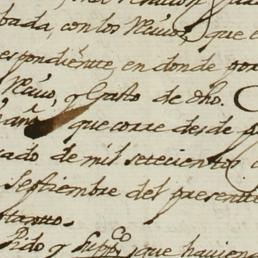 bada, con los Recivos, que
espondiente, en donde por
Recivo, y Gasto de dho.
que corre desde
ado de mil setecientos
Septiembre del presente
stanto.
Pido y Suppco que haviend